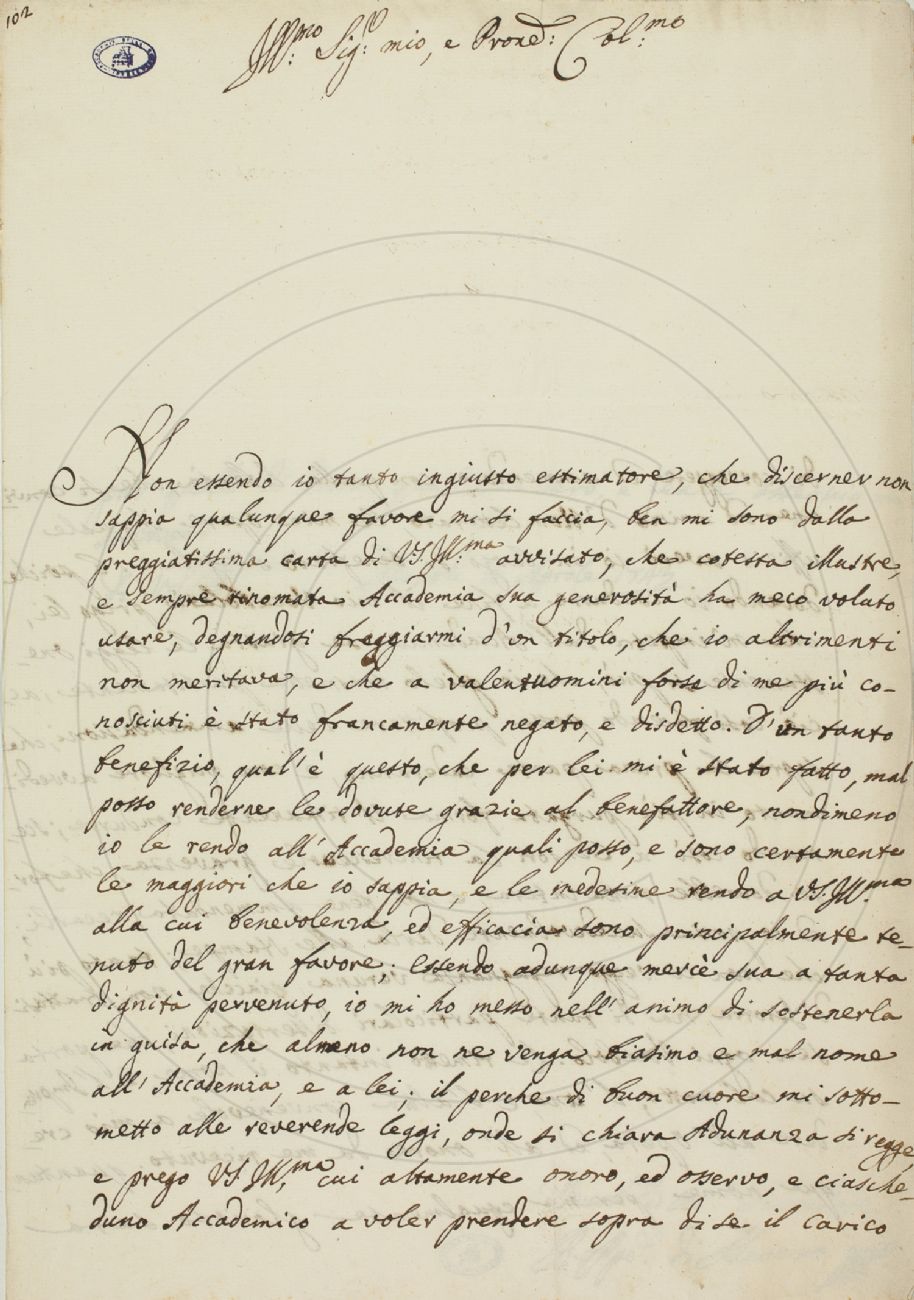 102
Ill:mo Sig:re mio, e Pronẽ: Col:mo
Non essendo io tanto ingiusto estimatore, che discerner non
sappia qualunque favore mi si faccia, ben mi sono dalla
preggiatissima carta di VS. Ill:ma avvisato, che cotesta illustre,
e sempre rinomata Accademia sua generosità ha meco voluto
usare, degnandosi freggiarmi d'un titolo, che io altrimenti
non meritava, e che a valentuomini forse di me più co-
nosciuti è stato francamente negato, e disdetto. D'un tanto
benefizio, qual'è questo, che per lei mi è stato fatto, mal
posso renderne le dovute grazie al benefattore, nondimeno
io le rendo all'Accademia quali posso, e sono certamente
le maggiori che io sappia, e le medesime rendo a VS. Ill:ma
alla cui benevolenza, ed efficacia sono principalmente te-
nuto del gran favore; Essendo adunque mercè sua a tanta
dignità pervenuto, io mi ho messo nell'animo di sostenerla
in guisa, che almeno non ne venga biasimo e mal nome
all'Accademia, e a lei; il perche di buon cuore mi sotto-
metto alle reverende leggi, onde si chiara Adunanza si regge,
e prego VS. Ill:ma cui altamente onoro, ed osservo, e ciasche-
duno Accademico a voler prendere sopra di se il carico